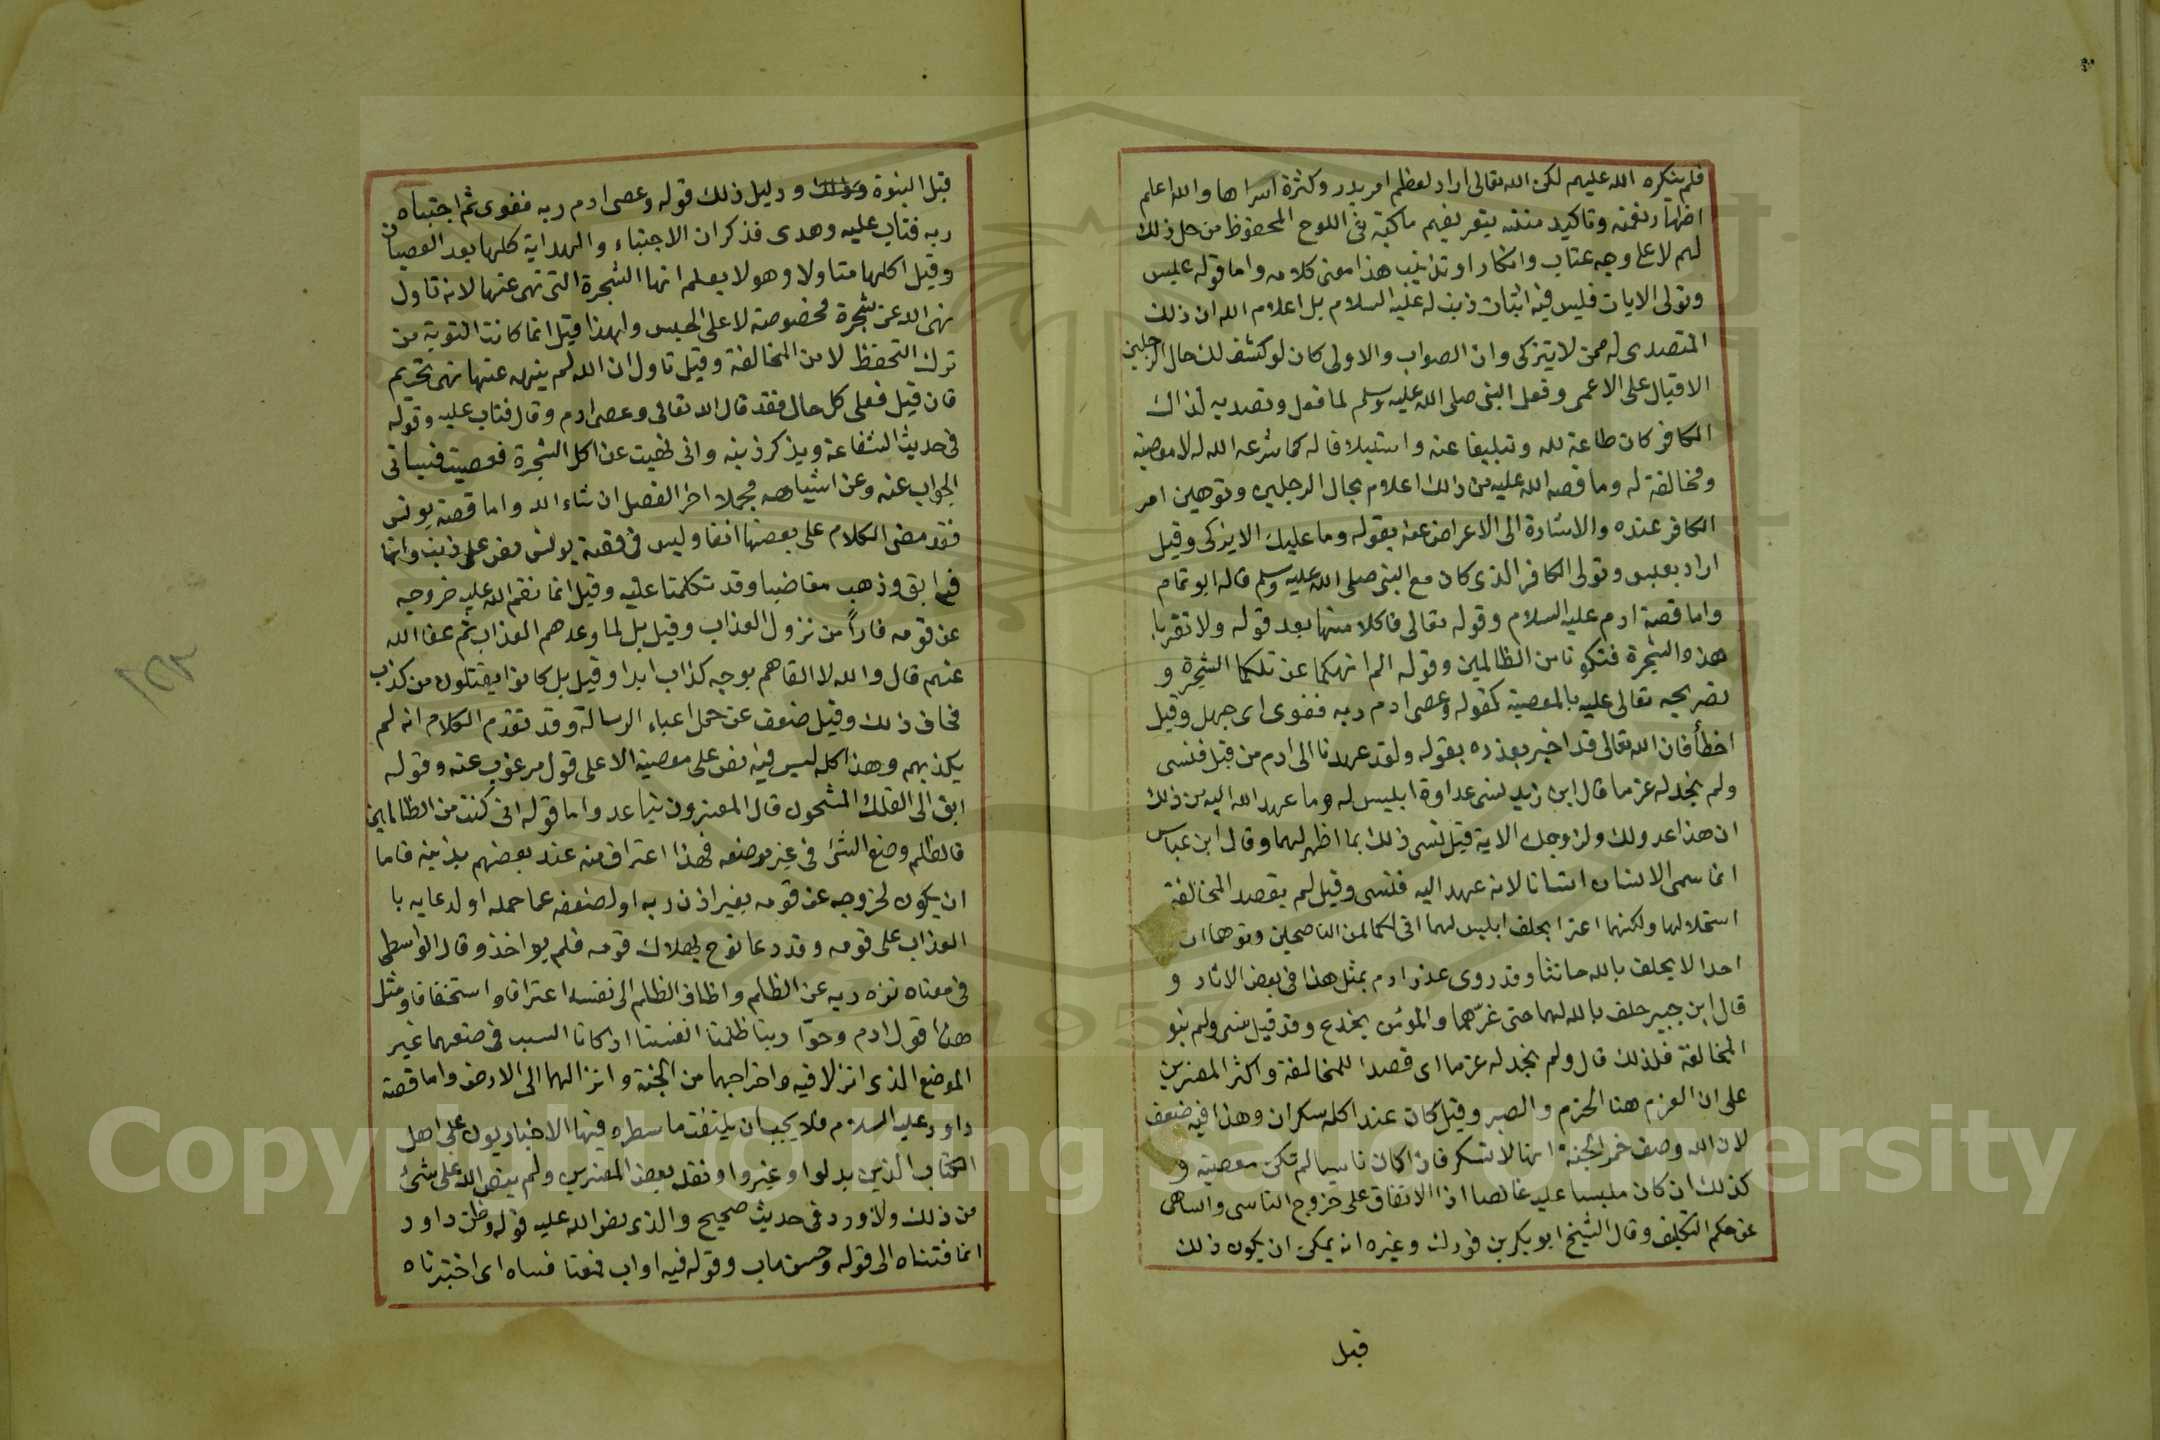 فلم ينكره الله عليهم لكن الله تعالى اراد لعظم امر بدر وكثرة اسراها والله اعلم
اظهار نعمته وتاكيد منته بتعريفهم ما كتبه فى اللوح المحفوظ من حل ذلك
لهم لا على وجه عتاب وانكار او تذنيب هذا معنى كلامه واما قوله عبس
وتولى الايات فليس فيه اثبات ذنب له عليه السلام بل اعلام الله ان ذلك
المتصدى له ممن لا يتزكى وان الصواب والاولى كان لو كشف لك حال الرجلين
الاقبال على الاعمى وفعل النبى صلى الله عليه وسلم لما فعل وتصديه لذاك
الكافر كان طاعة لله وتبليغا عنه واستيلافا له كما شرعه الله له لا معصية
ومخالفة له وما قصه الله عليه من ذلك اعلام بحال الرجلين وتوهين امر
الكافر عنده والاشارة الى الاعراض عنه بقوله وما عليك الا يزكى وقيل
اراد بعبس وتولى الكافر الذى كان مع النبى صلى الله عليه وسلم قاله ابو تمام
واما قصة ادم عليه السلام وقوله تعالى فاكلا منها بعد قوله ولا تقربا
هذه الشجرة فتكونا من الظالمين وقوله الم انهكما عن تلكما الشجرة و
تصريحه تعالى عليه بالمعصية كقوله وعصى ادم ربه فغوى اى جهل وقيل
اخطأ فان الله تعالى قد اخبر بعذره بقوله ولقد عهدنا الى ادم من قبل فنسى
ولم نجد له عزما قال ابن زيد نسى عداوة ابليس له وما عهد الله اليه من ذلك
ان هذا عدو لك ولزوجك الاية قيل نسى ذلك بما اظهر لهما وقال ابن عباس
انما سمى الانسان انسانا لانه عهد اليه فنسى وقيل لم يقصد المخالفة
استحلالها ولكنهما اغترا بحلف ابليس لهما انى لكما لمن الناصحين وتوهما ان
احدا لا يحلف بالله حانثا وقد روى عذر ادم بمثل هذا فى بعض الاثار و
قال ابن جبير حلف بالله لهما حتى غرّهما والمؤمن يخدع وقد قيل نسى ولم ينو
المخالفة فلذلك قال ولم نجد له عزما اى قصدا للمخالفة واكثر المفسرين
على ان العزم هنا الحزم والصبر وقيل كان عند اكله سكران وهذا فيه ضعف
لان الله وصف خمر الجنة انها لا تسكر فاذا كان ناسيا لم تكن معصية و
كذلك ان كان ملبسا عليه غالطا اذ الاتفاق على خروج الناسى والساهى
عن حكم التكليف وقال الشيخ ابو بكر بن فورك وغيره انه يمكن ان يكون ذلك
قبل
قبل النبوة ودليل ذلك قوله وعصى ادم ربه فغوى ثم اجتباه
ربه فتاب عليه وهدى فذكر ان الاجتباء والهداية كلها بعد العصيان
وقيل اكلها متاولا وهو لا يعلم انها الشجرة التى نهى عنها لانه تاول
نهى الله عن شجرة مخصوصة لا على الجنس ولهذا قيل انما كانت التوبة من
ترك التحفظ لا من المخالفة وقيل تاول ان الله لم ينهه عنها نهى تحريم
فان قيل فعلى كل حال فقد قال الله تعالى وعصى ادم وقال فتاب عليه وقوله
فى حديث الشفاعة ويذكر ذنبه وانى نهيت عن اكل الشجرة فعصيت فسياتى
الجواب عنه وعن اشباهه مجملا اخر الفصل ان شاء الله واما قصة يونس
فقد مضى الكلام على بعضها انفا وليس فى قصة يونس نص على ذنب وانما
فيه ابق وذهب مغاضبا وقد تكلمنا عليه وقيل انما نقم الله عليه خروجه
عن قومه فاراً من نزول العذاب وقيل بل لما وعدهم العذاب ثم عفا الله
عنهم قال والله لا القاهم بوجه كذاب ابدا وقيل بل كانوا يقتلون من كذب
فخاف ذلك وقيل ضعف عن حمل اعباء الرسالة وقد تقدم الكلام انه لم
يكذبهم وهذا كله ليس فيه نص على معصية الا على قول مرغوب عنه وقوله
ابق الى الفلك المشحون قال المفسرون تباعد واما قوله انى كنت من الظالمين
فالظلم وضع الشئ فى غير موضعه فهذا اعتراف منه عند بعضهم بذنبه فاما
ان يكون لخروجه عن قومه بغير اذن ربه او لضعفه عما حمله او لدعايه با
العذاب على قومه وقد دعا نوح بهلاك قومه فلم يواخذ وقال الواسطى
فى معناه نزه ربه عن الظلم واضاف الظلم الى نفسه اعترافا واستحقاقا ومثل
هذا قول ادم وحوّا ربنا ظلمنا انفسنا اذ كانا السبب فى وضعهما غير
الموضع الذى انزلا فيه واخراجهما من الجنة وانزالهما الى الارض واما قصة
داود عليه السلام فلا يجب ان يلتفت ما سطره فيها الاخباريون على اهل
الكتاب الذين بدلوا وغيروا ونقله بعض المفسرين ولم ينص الله على شئ
من ذلك ولا ورد فى حديث صحيح والذى نص الله عليه قوله وظن داود
انما فتناه الى قوله وحسن ماب وقوله فيه اواب فمعنا فتناه اى اختبرناه
١٥٢
Copyright © King Saud University
1957